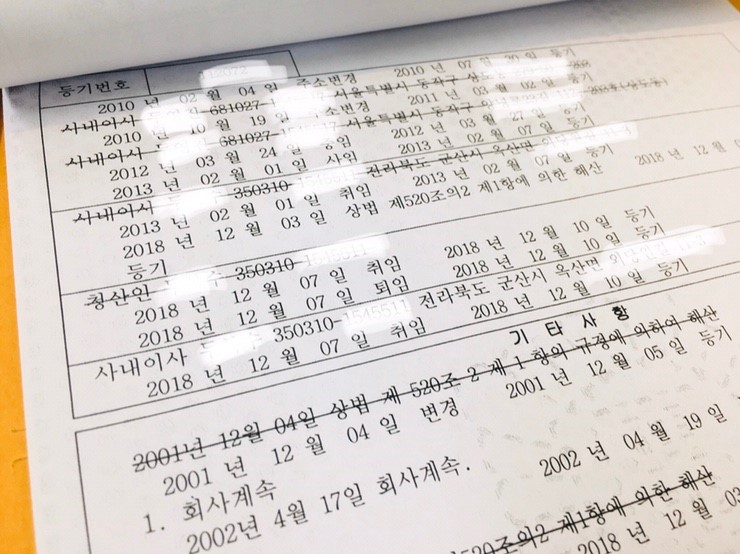 등기번호
2010 년 02 월 04 일 주소변경 2010 년 07 월 20 일 등기
사내이사 681027- 서울특별시 동작구
2010 년 10 월 19 일 주소변경 2011 년 03 월 02 일 등기
사내이사 681027- 서울특별시 동작구
2012 년 03 월 24 일 중임 2012 년 03 월 27 일 등기
2013 년 02 월 01 일 사임 2013 년 02 월 07 일 등기
사내이사 350310- 전라북도 군산시 옥산면
2013 년 02 월 01 일 취임 2013 년 02 월 07 일 등기
2018 년 12 월 03 일 상법 제520조의2 제1항에 의한 해산 2018 년 12 월
등기
청산인 수 350310-
2018 년 12 월 07 일 취임 2018 년 12 월 10 일 등기
2018 년 12 월 07 일 퇴임 2018 년 12 월 10 일 등기
사내이사 350310- 전라북도 군산시 옥산면
2018 년 12 월 07 일 취임 2018 년 12 월 10 일 등기
기 타 사 항
2001년 12월 04일 상법 제 520조 2 제 1 항의 규정에 의하여 해산
2001 년 12 월 04 일 변경 2001 년 12 월 05 일 등기
1. 회사계속
2002년 4월 17일 회사계속. 2002 년 04 월 19 일
520조의2 제1항에 의한 해산
2018 년 12 월 03